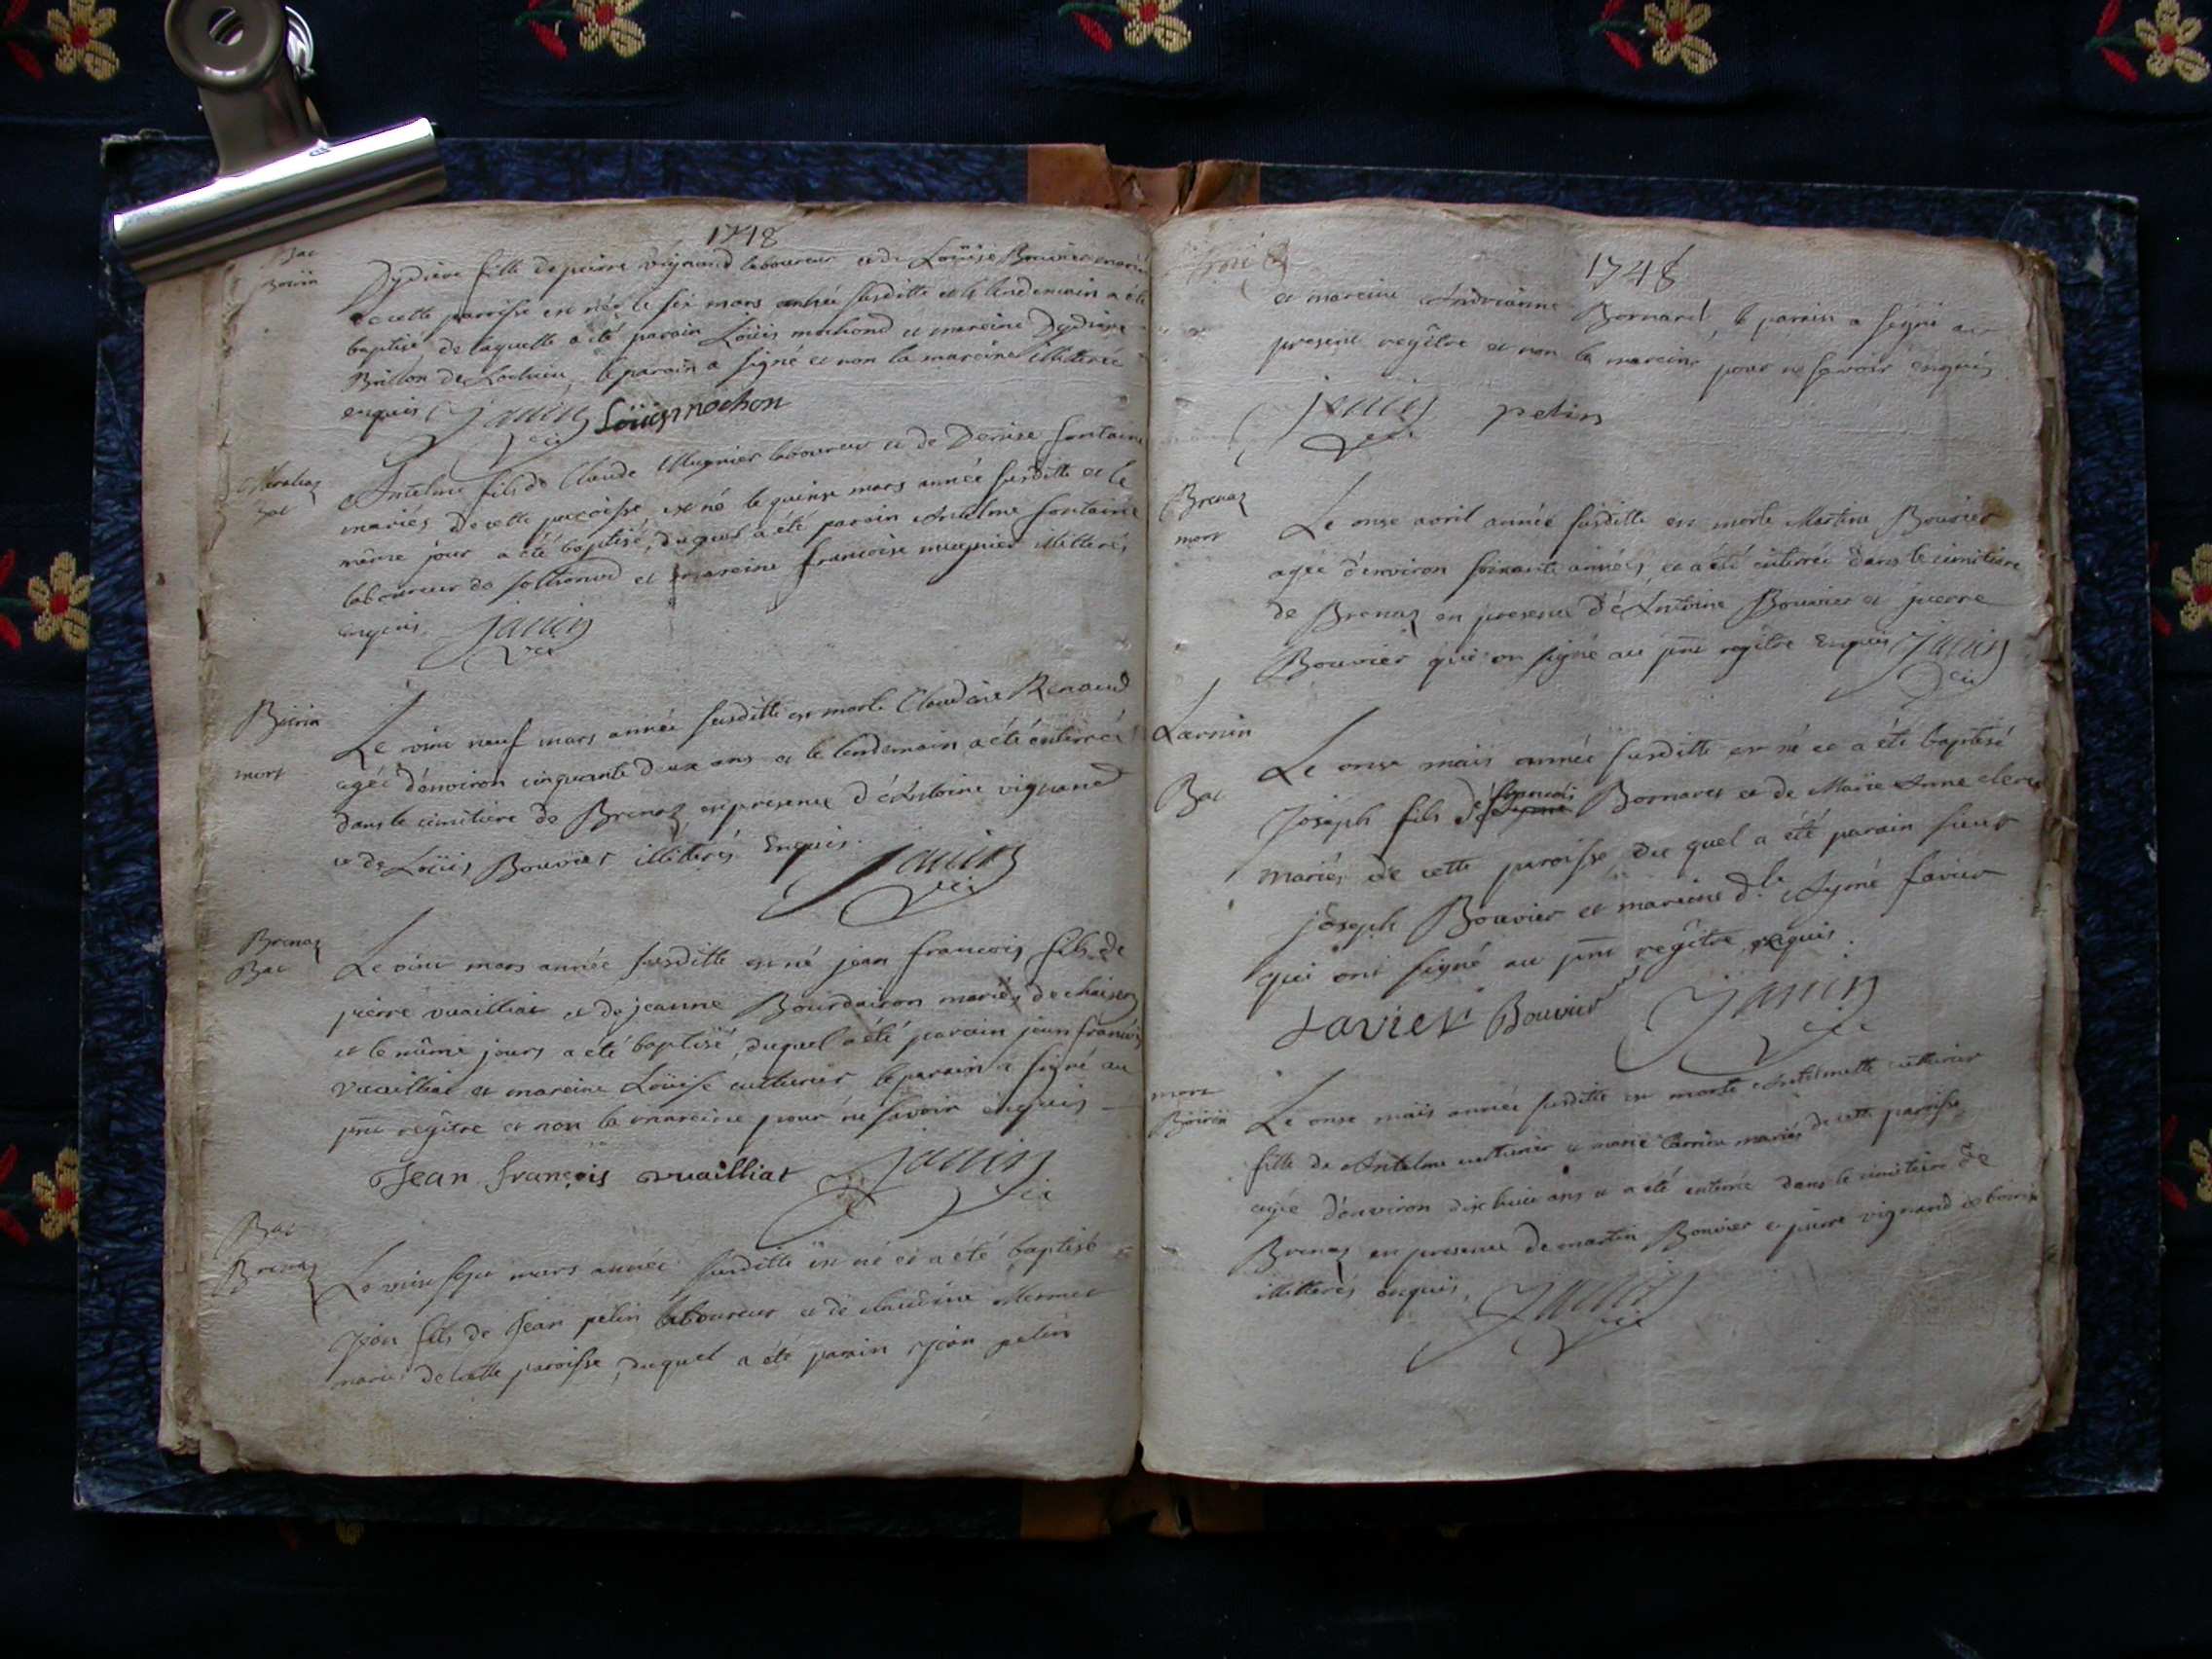 1748
Bac
Boirin
Dydiere fille de pierre Vignand laboureur et de Loüise Bouvier mariés
de cette paroisse est née le six mars année susditte et le lendemain a été
baptisé, de laquelle a été parain Loüis mochond et mareine Dydiere
Brillon de Lochieu, le parain a signé et non la mareine illitterée
enquis Janin Loüis mochon
vic
Bac
Anselme fils de Claude Mugnier laboureur et de Denise fontaine
mariés de cette paroisse est né le quinse mars année susditte et le
même jour a été baptisé, duquel a été parain Antelme fontaine
laboureur de et mareine francoise mugnier illitterés
enquis Janin
vic
Boirin
mort
Le vint neuf mars année susditte est morte Claudine Renaud
agée d'environ cinquante deux ans et le lendemain a été enterrée
dans le cimitiere de Brenaz en presence d'Antoine vignand
et de Loüis Bouvier illiterés Enquis. Janin
vic
Brenaz
Bac
Le vint mars année susditte est né jean francois fils de
pierre vuailliat et de jeanne Bourdairon mariés de
et le même jours a été baptisé, duquel a été parain jean francois
vuailliat et mareine Loüise cutturier le parain a signé au
pnt regitre et non la mareine pour ne savoir enquis
Jean françois vuailliat Janin
vic
Bac
Brenaz
Le vint sept mars année susditte est né et a été baptisé
Jean fils de Jean pelin laboureur et de claudine Mermet
mariés de cette paroisse, duquel a été parain Jean pelin
1748
et mareine Andrianne Bornard, le parain a signé au
present regître et non la mareine pour ne savoir enquis
Janin pelin
vic
Brenaz
mort
Le onse avril année susditte est morte Martine Bouvier
agée d'environ soixante années, et a été enterrée dans le cimitiere
de Brenaz en presence d'Antoine Bouvier et pierre
Bouvier qui on signé au pnt regître Enquis Janin
vic
Larnin
Bac
Le onse mais année susditte est né et a été baptisé
Joseph fils de francois Bornaret et de Marie Anne clerc
mariés de cette paroisse, du quel a été parain sieur
joseph Bouvier et mareine d.le Aymé favier
qui ont signé au pnt regître, enquis.
favier Bouvier Janin
vic
mort
Boirin
Le onse mais année susditte est morte Antelmette cutturier
fille de Antelme cutturier et marie mariés de cette paroisse
agée d'environ dix huit ans et a été enterrée dans le cimitiere de
Brenaz en presence de martin Bouvier et pierre vignand de boirin
illitterés enquis, Janin
vic